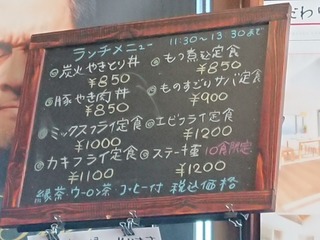 ランチメニュー 11:30〜13:30まで
◎炭火やきとり丼 ¥850
◎もつ煮込定食 ¥850
◎豚やき肉丼 ¥850
◎ものすごりサバ定食 ¥900
◎ミックスフライ定食 ¥1000
◎エビフライ定食 ¥1200
◎カキフライ定食 ¥1100
◎ステーキ重 10食限定 ¥1200
緑茶・ウーロン茶 コーヒー付 税込価格
だわり